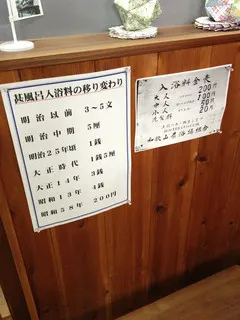 甚風呂入浴料の移り変わり
明治以前 3~5文
明治中期 5厘
明治25年頃 1銭
大正時代 1銭5厘
大正14年 3銭
昭和13年 4銭
昭和58年 200円
入浴料金表
大人 200円
中人 100円
小人 50円
洗髪料 20円
和歌山県浴場組合